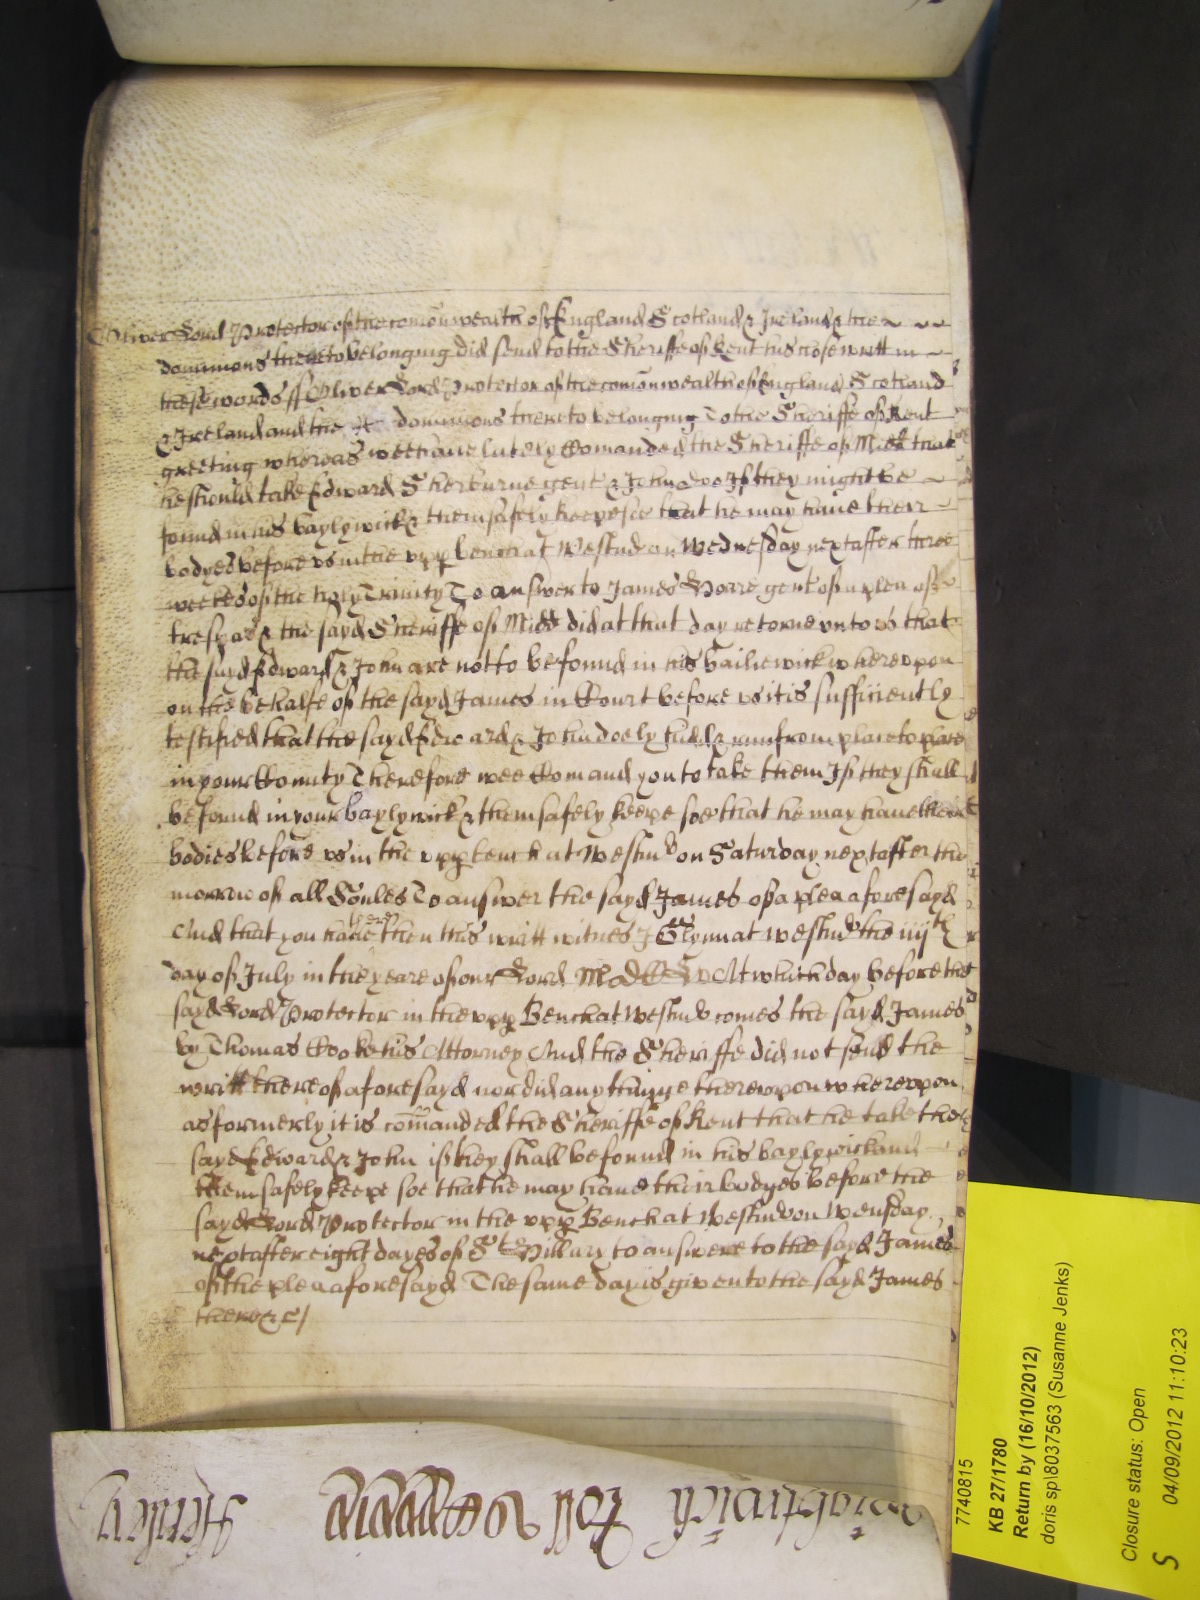 Oliver Lord Protector of the comonwealth of England Scotland & Ireland & the
dominions thereto belonging did send to the Sheriffe of Kent his close writt in
these words ss Oliver Lord Protector of the comonwealth of England Scotland
& Ireland and the dominions thereto belonging To the Sheriffe of Kent
greeting whereas wee have lately Comanded the Sheriffe of Midd that
he should take Edward Sherburne gent & John Doo If they might be
found in his baylywick & them safely keepe soe that he may have their
bodyes before us in the upp bench at Westm on Wednesday next after three
weekes of the holy Trinity To answer to James gent of a plea of
trespas & the sayd Sheriffe of Midd did at that day retorne unto us that
the sayd Edward & John are not to be found in his bailiewick whereupon
on the behalfe of the sayd James in Court before us it is sufficiently
testified that the sayd Edward & John doe ly hidd & runn from place to place
in your County Therefore wee Comand you to take them If they shall
be found in your baylywick & them safely keepe soe that he may have their
bodies before us in the upp bench at Westm on Saturday next after the
morrow of all Soules To answer the sayd James of a plea aforesayd
And that you have there then this writt witnes J Glynn at Westm the iiij th
day of July in the yeare of our Lord At which day before the
sayd Lord Protector in the upp Bench at Westm comes the sayd James
by Thomas Cooke his Attorney And the Sheriffe did not send the
writt thereof aforesayd nor did any thinge thereuppon whereuppon
as formerly it is comanded the Sheriffe of Kent that he take the
sayd Edward & John if they shall be found in his baylywick and
them safely keepe soe that he may have their bodyes before the
sayd Lord Protector in the upp Bench at Westm on Wensday
next after eight dayes of St Hillary to answere to the sayd James
of the plea aforesayd The same day is given to the sayd James
there &c/
7740815
KB 27/1780
Return by (16/10/2012)
doris sp\8037563 (Susanne Jenks)
Closure status: Open
S 04/09/2012 11:10:23